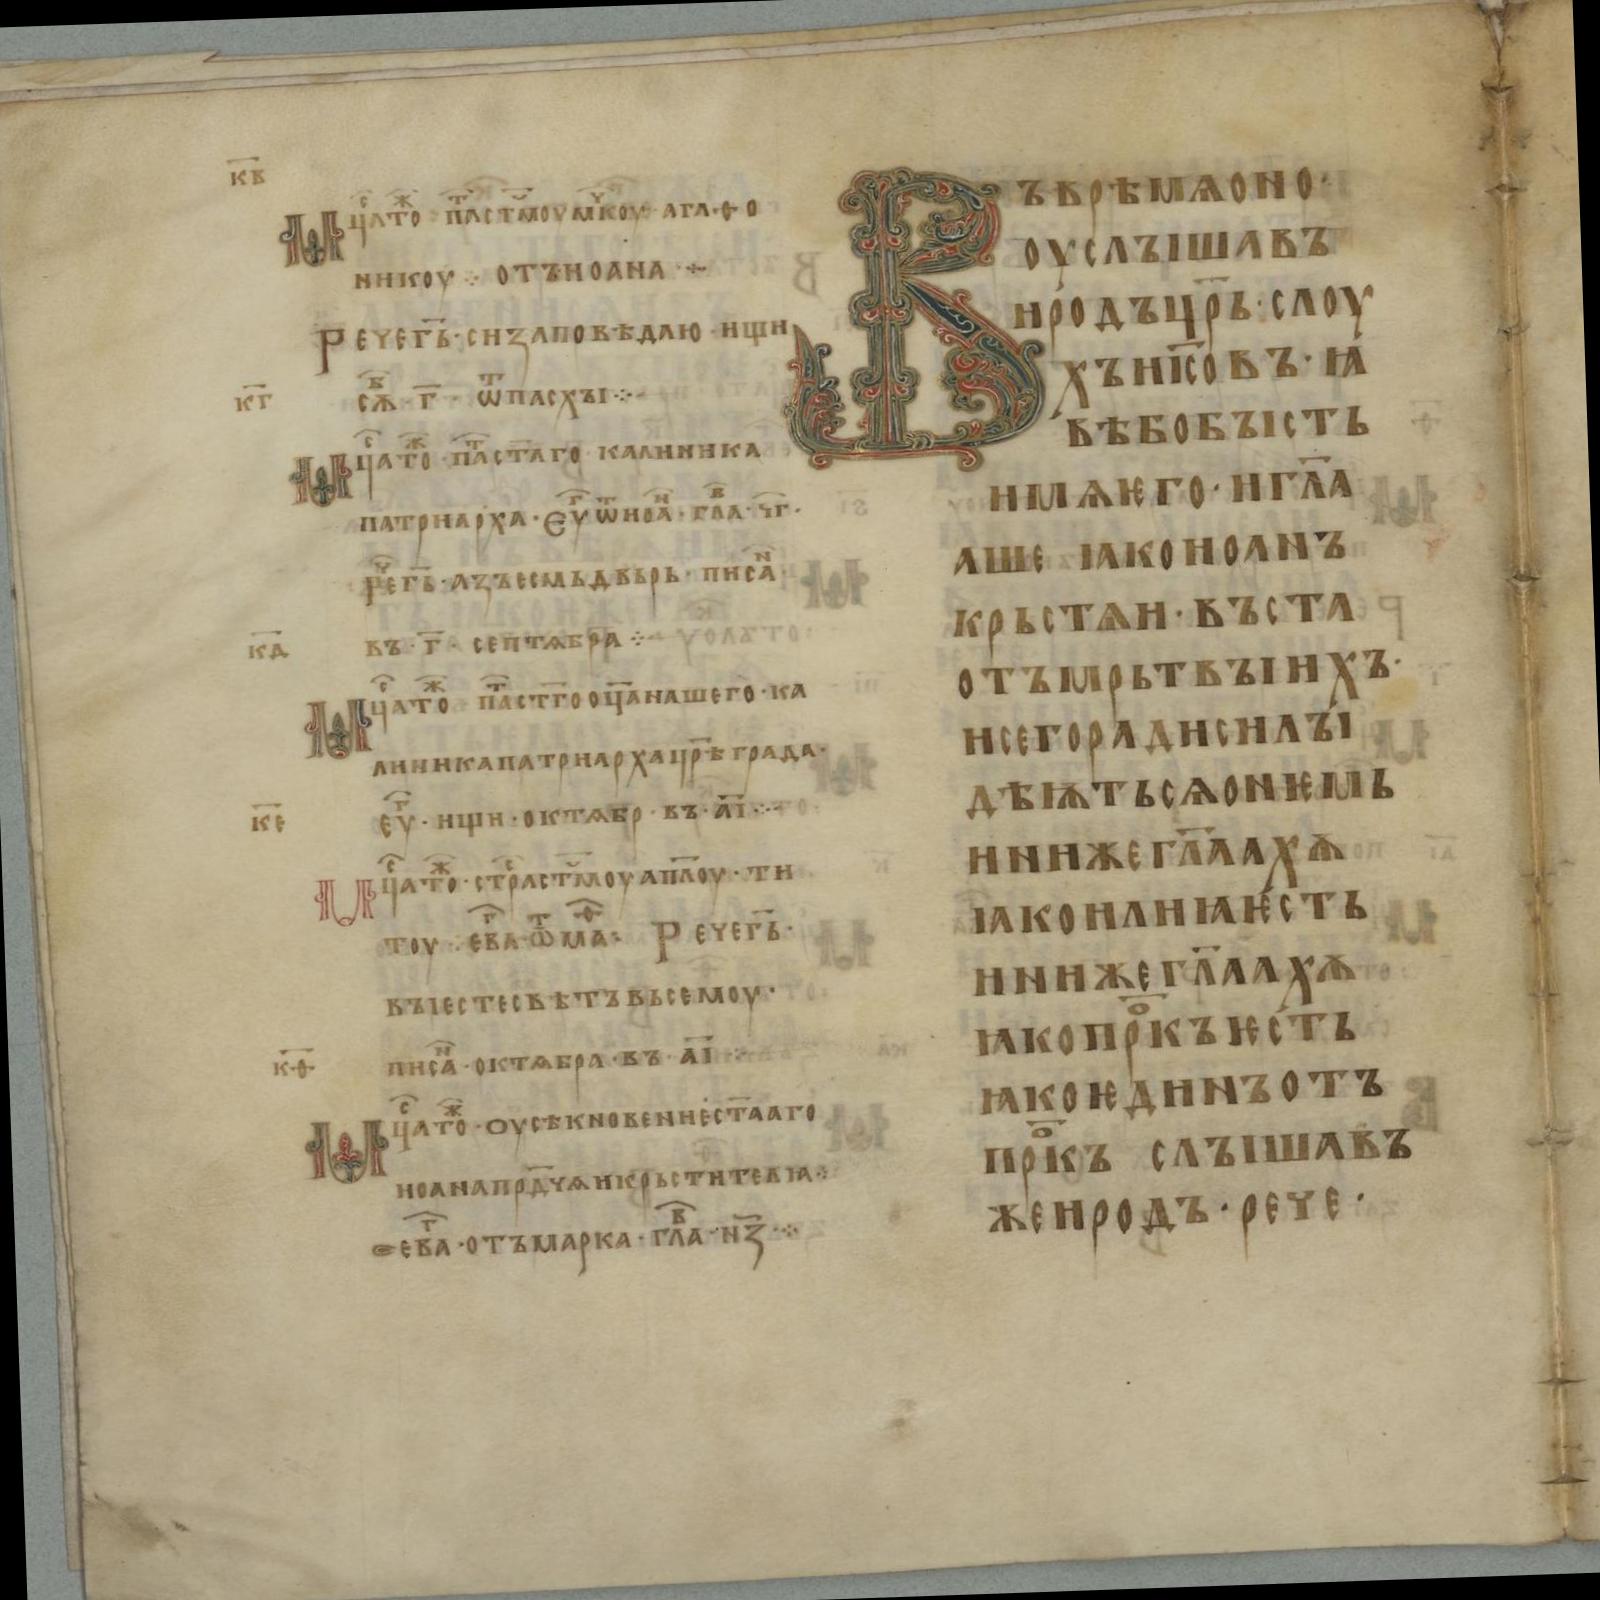 к҃в
М цⷭ҇ато ⷤ пⷮасть҃моу мⷱ҇коу · ага · ѳо
никоу ⁘ отъ иоана ⁘
Рече г҃ь · си заповѣдаю · ищи
к҃г
сѫⷠ · г҃ · ѿ пасхꙑ ⁘
М цⷭ҇ато ⷤ · пⷮаст҃аго · калиника
патриарха · еуⷢ҇ ѿ иоаⷩ҇ · глаⷡ҇ · ч҃г ·
Рⷱ҇е г҃ь · азъ есмь двьрь · писаⷩ҇
к҃д
въ · г҃ · септѧбра ⁘
М цⷭ҇ато ⷤ пⷮаст҃го оц҃а нашего · ка
линика патриарха цр҃ѣграда ·
к҃е
еуⷢ҇ · ищи · октѧбр · въ · а҃і ⁘
М цⷭ҇ато ⷤ · стⷭ҇растьмоу ап҃лоу · ти
тоу · еваⷢ҇ · ѿ маⷴ҇ · Рече г҃ь ·
вꙑ есте свѣтъ вьсемоу ·
к҃ѳ
писаⷩ҇ · октѧбра · въ · а҃і ⁘
М цⷭ҇ато ⷤ · оусѣкновение ст҃ааго
иоана прд҃чѧ и крьстителꙗ ⁘
еваⷢ҇ · отъ марка · глаⷡ҇ · н҃з ⁘
Въ врѣмѧ оно ·
оуслꙑшавъ
иродъ цр҃ь · слоу
хъ ис҃овъ · ꙗ
вѣ бо бꙑсть
имѧ ѥго · и гл҃а
аше ꙗко иоанъ
крьстѧи · въста
отъ мрьтвꙑихъ ·
и сего ради силꙑ
дѣѭть сѧ о нѥмь
ини же гл҃аахѫ
ꙗко илиꙗ ѥсть
ини же гл҃аахѫ
ꙗко прⷪ҇къ ѥсть
ꙗко ѥдинъ отъ
прⷪ҇къ слꙑшавъ
же иродъ · рече ·